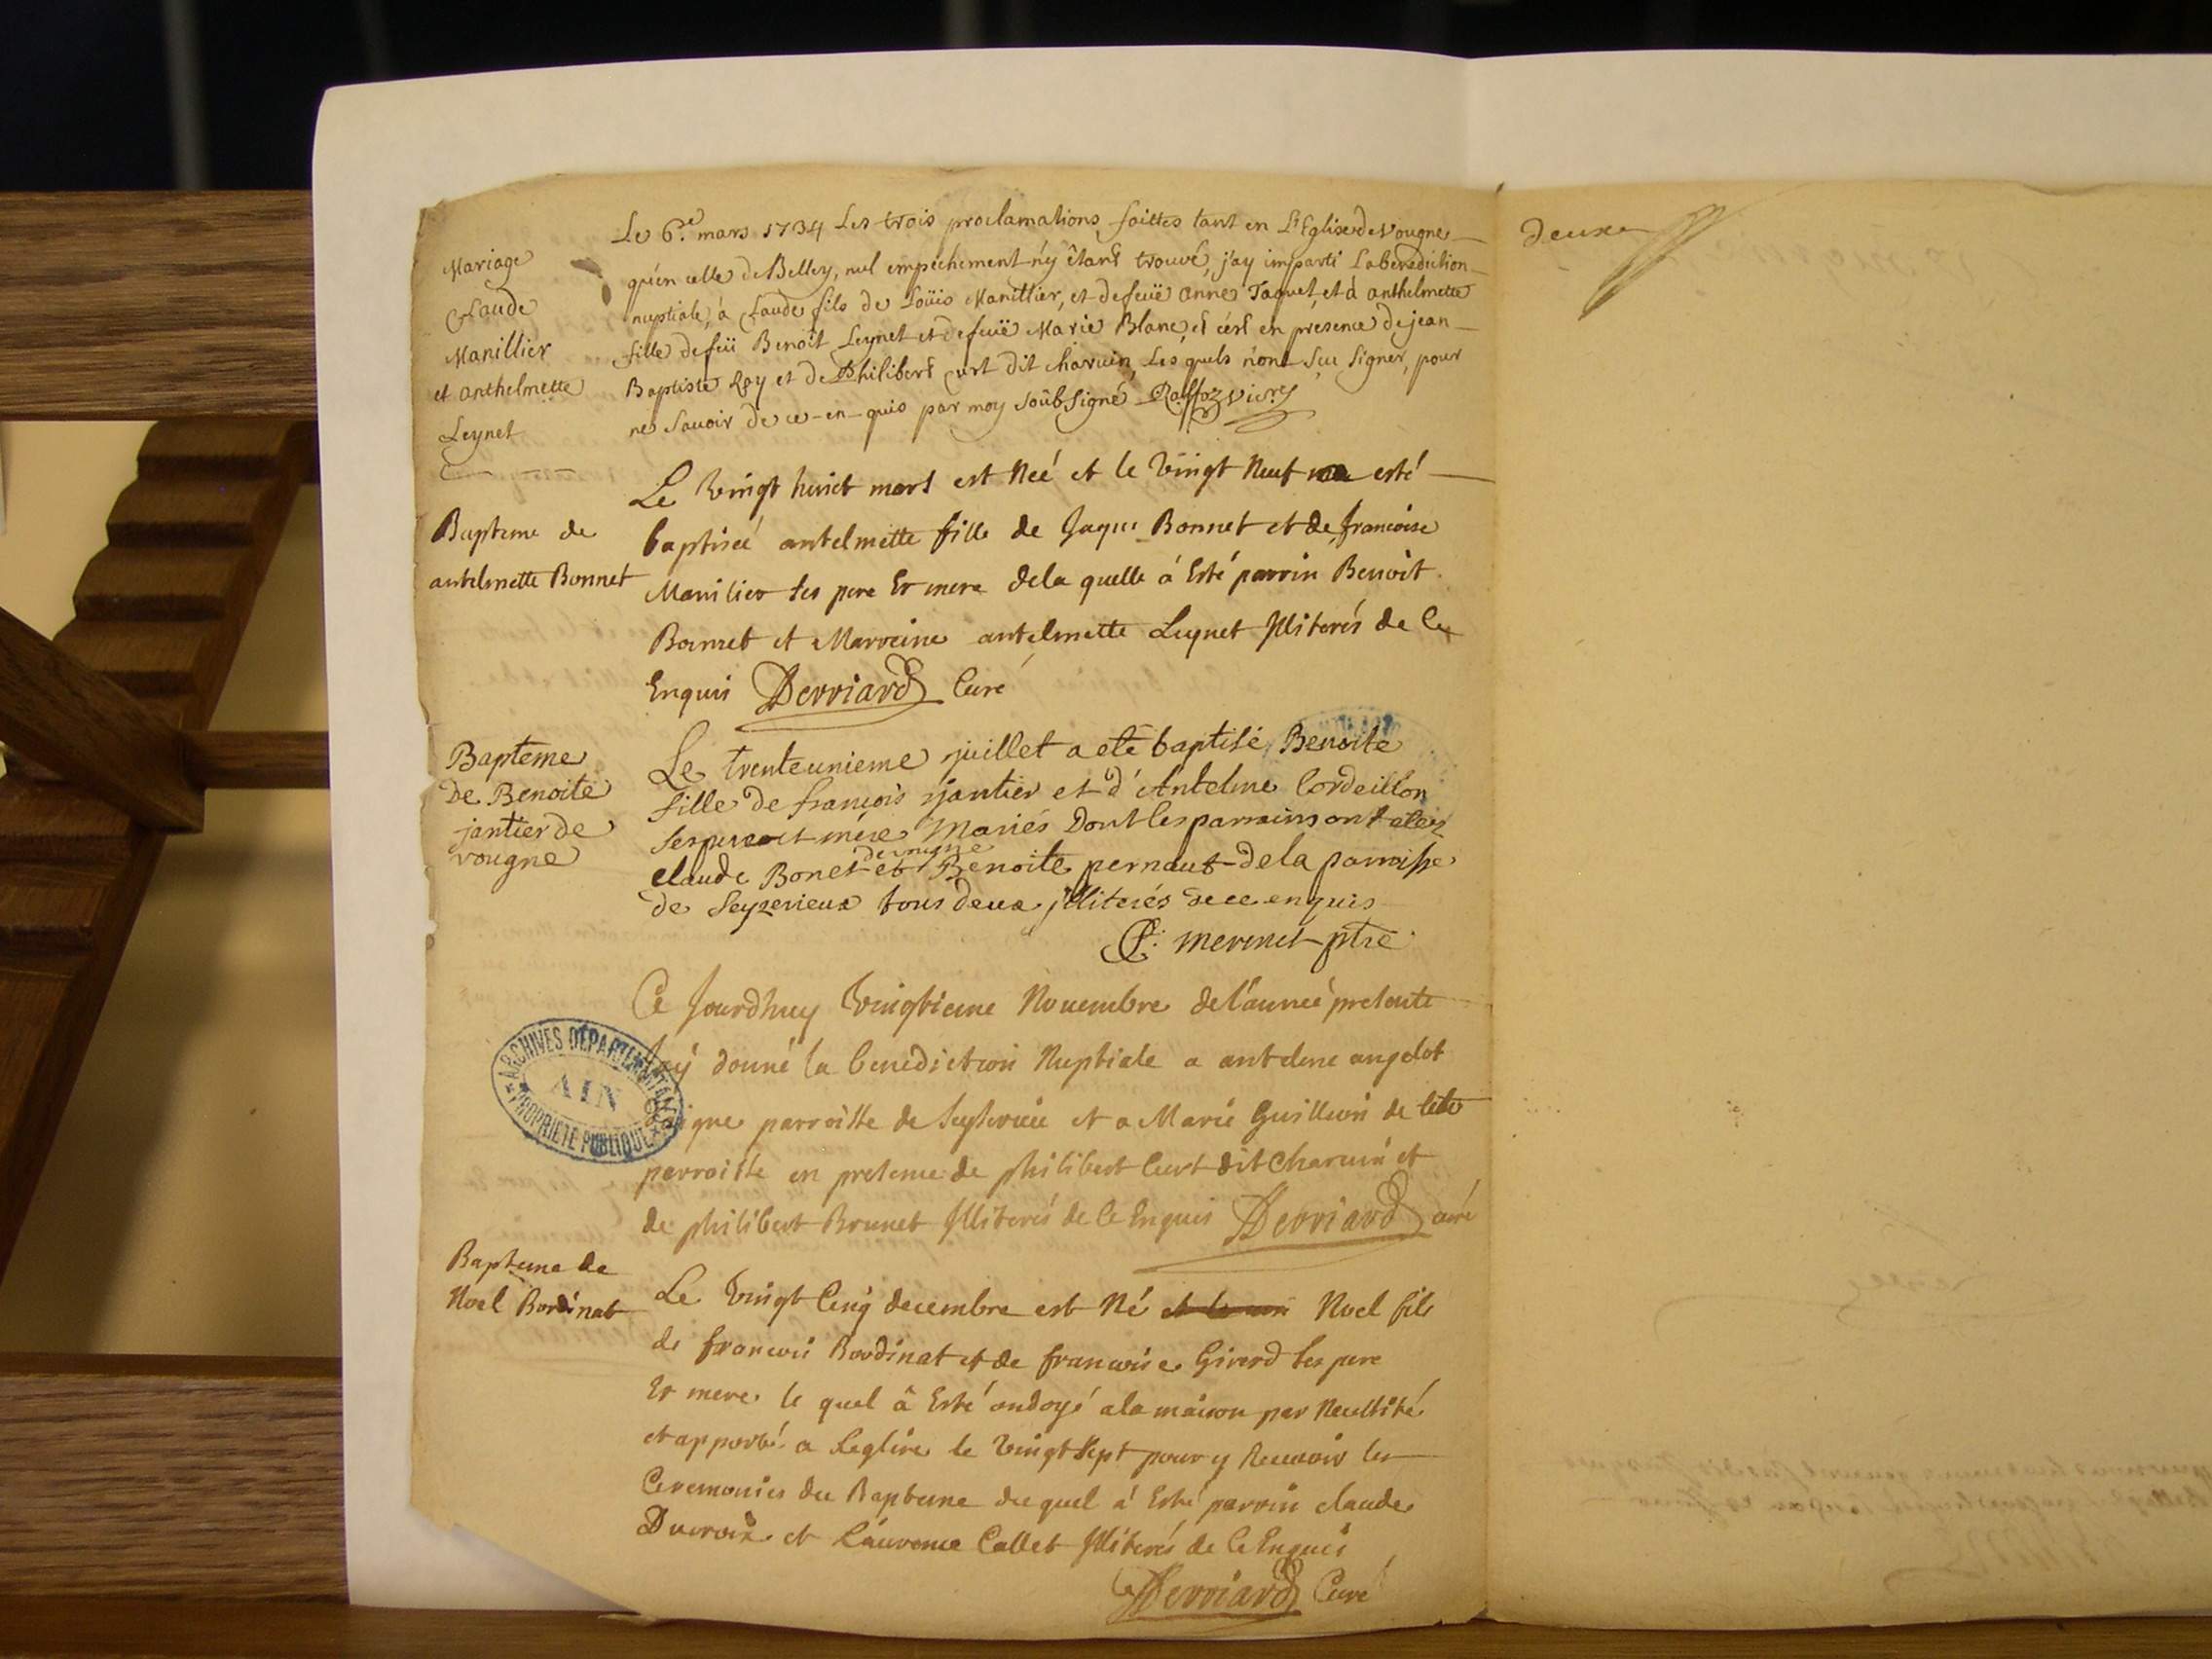 Le 6.e mars 1734 Les trois proclamations faittes tant en L'Eglise de Vougne
qu'en celle de Belley, nul empechement n'y étant trouvé, j'ay imparti La benediction
nuptiale, à Claude fils de Loüis Manillier, et de feuë anne Jaquet, et à anthelmette
fille de feü Benoît Leynet et de feuë Marie Blanc, et c'est en présence de jean
Baptiste Rey et de Philibert curt dit charuin, Les quels n'ont sçu signer, pour
ne sauoir de ce-en-quis par moy soûbsigné Raffoz vic.re
Mariage
Claude
Manillier
et anthelmette
Leynet
Le vingt huict mars est Neé et le vingt Neuf esté
baptiseé antelmette fille de Jaque Bonnet et de francoise
Manilier ses pere Et mere de la quelle á Esté parrin Benoit
Bonnet et Marreine antelmette Leynet Illiterés de Ce
Enquis Derriard Curé
Bapteme de
antelmette Bonnet
Le trente unieme juillet a eté baptisé Benoite
fille de francois jantier et d'Antelme Cordeillon
ses pere et mére Mariés Dont les parrains ont etez
claude Bonet de vougne et Benoite pernaut de la parroisse
de Seyzerieux tous deux illiterés de ce enquis
C: mermet ptre
Bapteme
De Benoite
jantier de
vougne
Ce Jourdhuy Vingtieme Nouembre de l'anneé presente
Jay donné la benediction Nuptiale a antelme angelot
parroisse de Seyserieu et a Marie Guillion de cete
parroisse en presence de philibert Curt dit Charuin et
de philibert Brunet Illiterés de Ce Enquis Derriard curé
Le vingt Cinq decembre est Né Noel fils
de francois Bordinat et de francoise Girerd ses pere
Et mere le quel â Esté ondoyé a la maison par Necessité
et apporté a Leglise le vingt sept pour y Receuoir les
Ceremonies du Bapteme du quel á Esté parrin claude
Ducroix et Laurence Callet Illiterés de Ce Enquis
Derriard Curé
Bapteme de
Noel Bordinat
ARCHIVES DÉPARTEMENTALES
AIN
PROPRIÉTÉ PUBLIQUE
deuxe